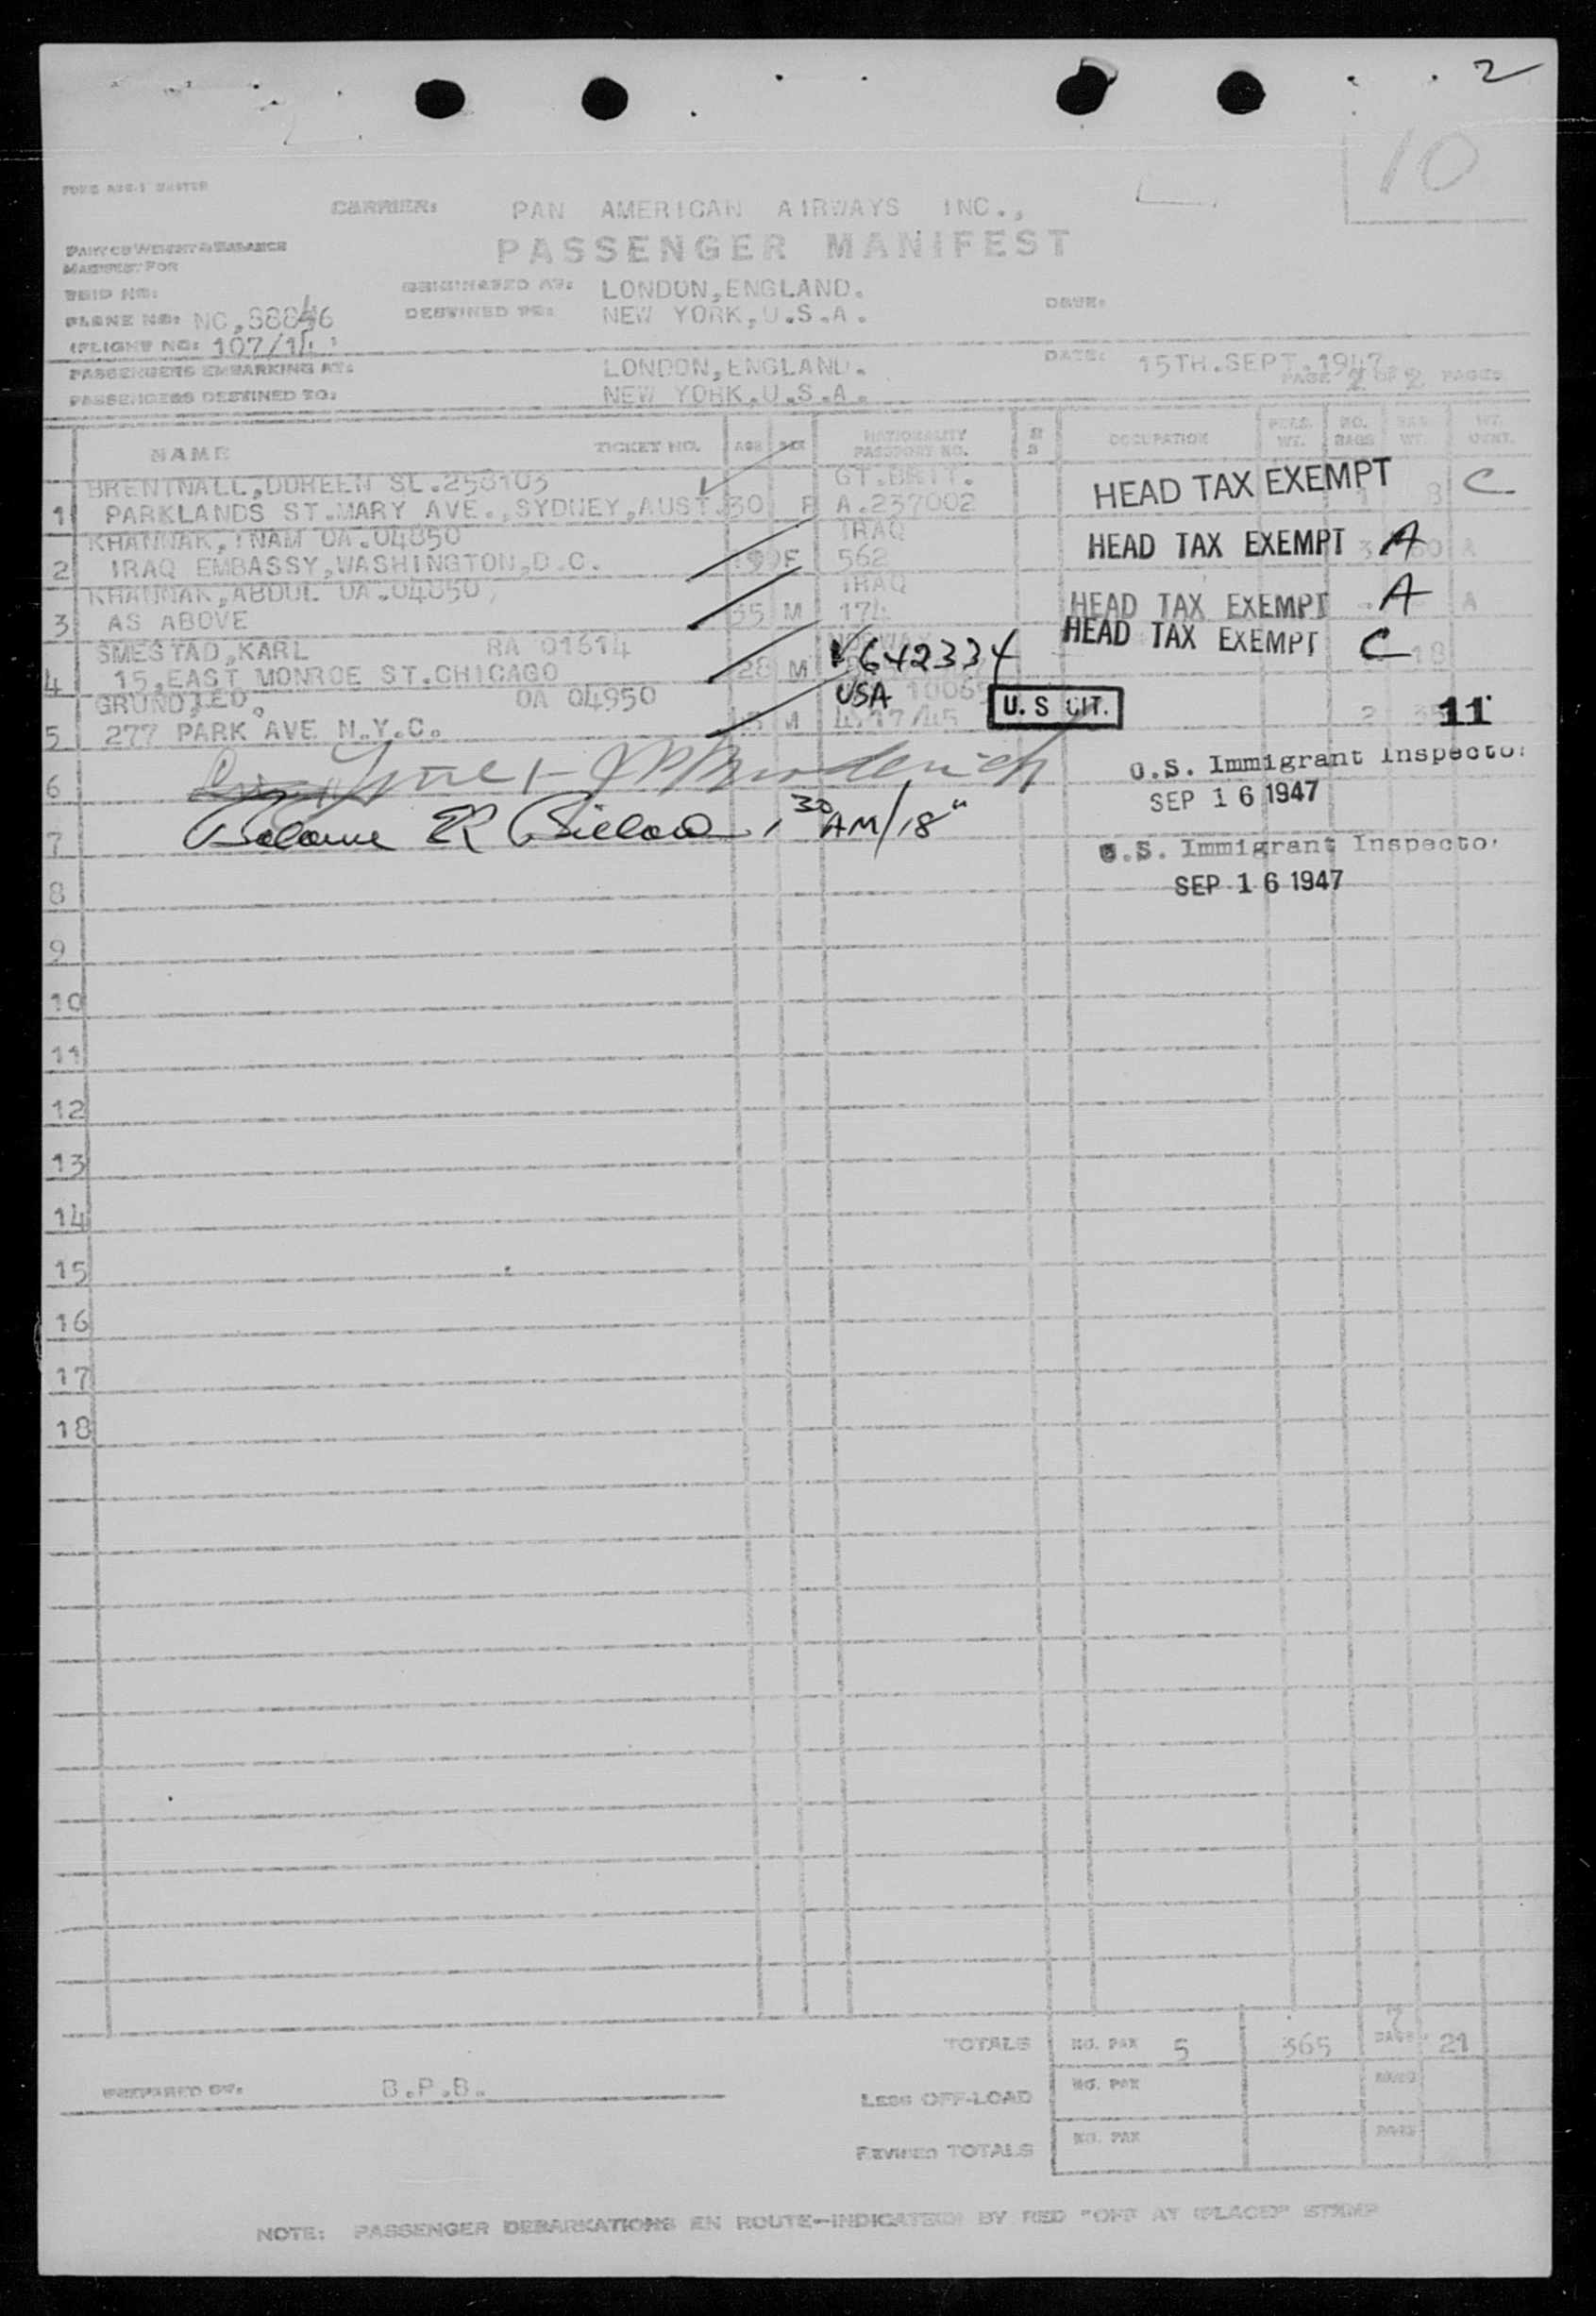 2
10
CARRIER: PAN AMERICAN AIRWAYS INC.,
PASSENGER MANIFEST
MANIFEST FOR
TRIP NO:
ORIGINATED AT: LONDON, ENGLAND.
DATE:
PLANE NO: NC,88846
DESTINED TO: NEW YORK, U.S.A.
FLIGHT NO: 107/14
PASSENGERS EMBARKING AT: LONDON, ENGLAND. DATE: 15TH.SEPT.1947
PAGE 2 OF 2 PAGES
PASSENGERS DESTINED TO: NEW YORK, U.S.A.
NAME TICKET NO. AGE SEX NATIONALITY PASSPORT NO. OCCUPATION PERS. WT. NO. BAGS
BRENTNALL, DOREEN SL.258103 GT.BRIT.
1 PARKLANDS ST.MARY AVE., SYDNEY, AUST. 30 F A.237002 HEAD TAX EXEMPT 8 C
KHANNAK, INAM OA.04850 IRAQ
2 IRAQ EMBASSY, WASHINGTON, D.C. F 562 HEAD TAX EXEMPT A A
KHANNAK, ABDUL OA.04850, IRAQ
3 AS ABOVE 35 M 174 HEAD TAX EXEMPT A A
SMESTAD, KARL RA 01614 NORWAY
4 15, EAST MONROE ST. CHICAGO 28 M V642334 HEAD TAX EXEMPT C 18
GRUND, LEO. OA 04950 USA
5 277 PARK AVE N.Y.C. M U. S CIT. 2 11
6
U.S. Immigrant Inspector
SEP 16 1947
7
AM/18"
U.S. Immigrant Inspecto
SEP 16 1947
8
9
10
11
12
13
14
15
16
17
18
TOTALS NO. PAX 5 365 BAGS 21
PREPARED BY: B.P.B.
LESS OFF-LOAD NO. PAX BAGS
REVISED TOTALS NO. PAX BAGS
NOTE: PASSENGER DEBARKATIONS EN ROUTE—INDICATED BY RED "OFF AT (PLACE)" STAMP